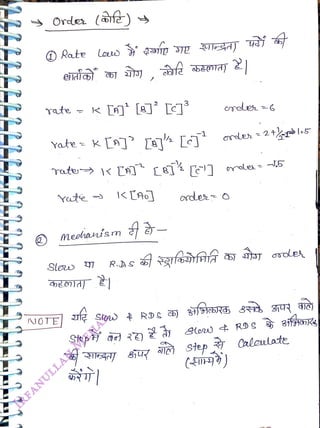 → Order (कोटि) →
① Rate Law में दर्शाए गए सान्द्रता पदों की
घातांकों का योग, कोटि कहलाता है।
rate = K [A]¹ [B]² [C]³ order = 6
rate = K [A]² [B]^½ [C]⁻¹ order = 2+½-1 ⇒ 1.5
rate → K [A]⁻² [B]^-½ [C¹] order = -1.5
rate → K [A₀] order = 0
② mechanism दी हो —
Slow या R.D.S की स्ट्राकियोमिति का योग order
कहलाता है।
NOTE यदि slow & RDS का अभिकारक उसके ऊपर वाले
step में बन रहा है तो slow & RDS के अभिकारक
की सान्द्रता ऊपर वाले step से calculate
(साम्य में)
करेंगे।